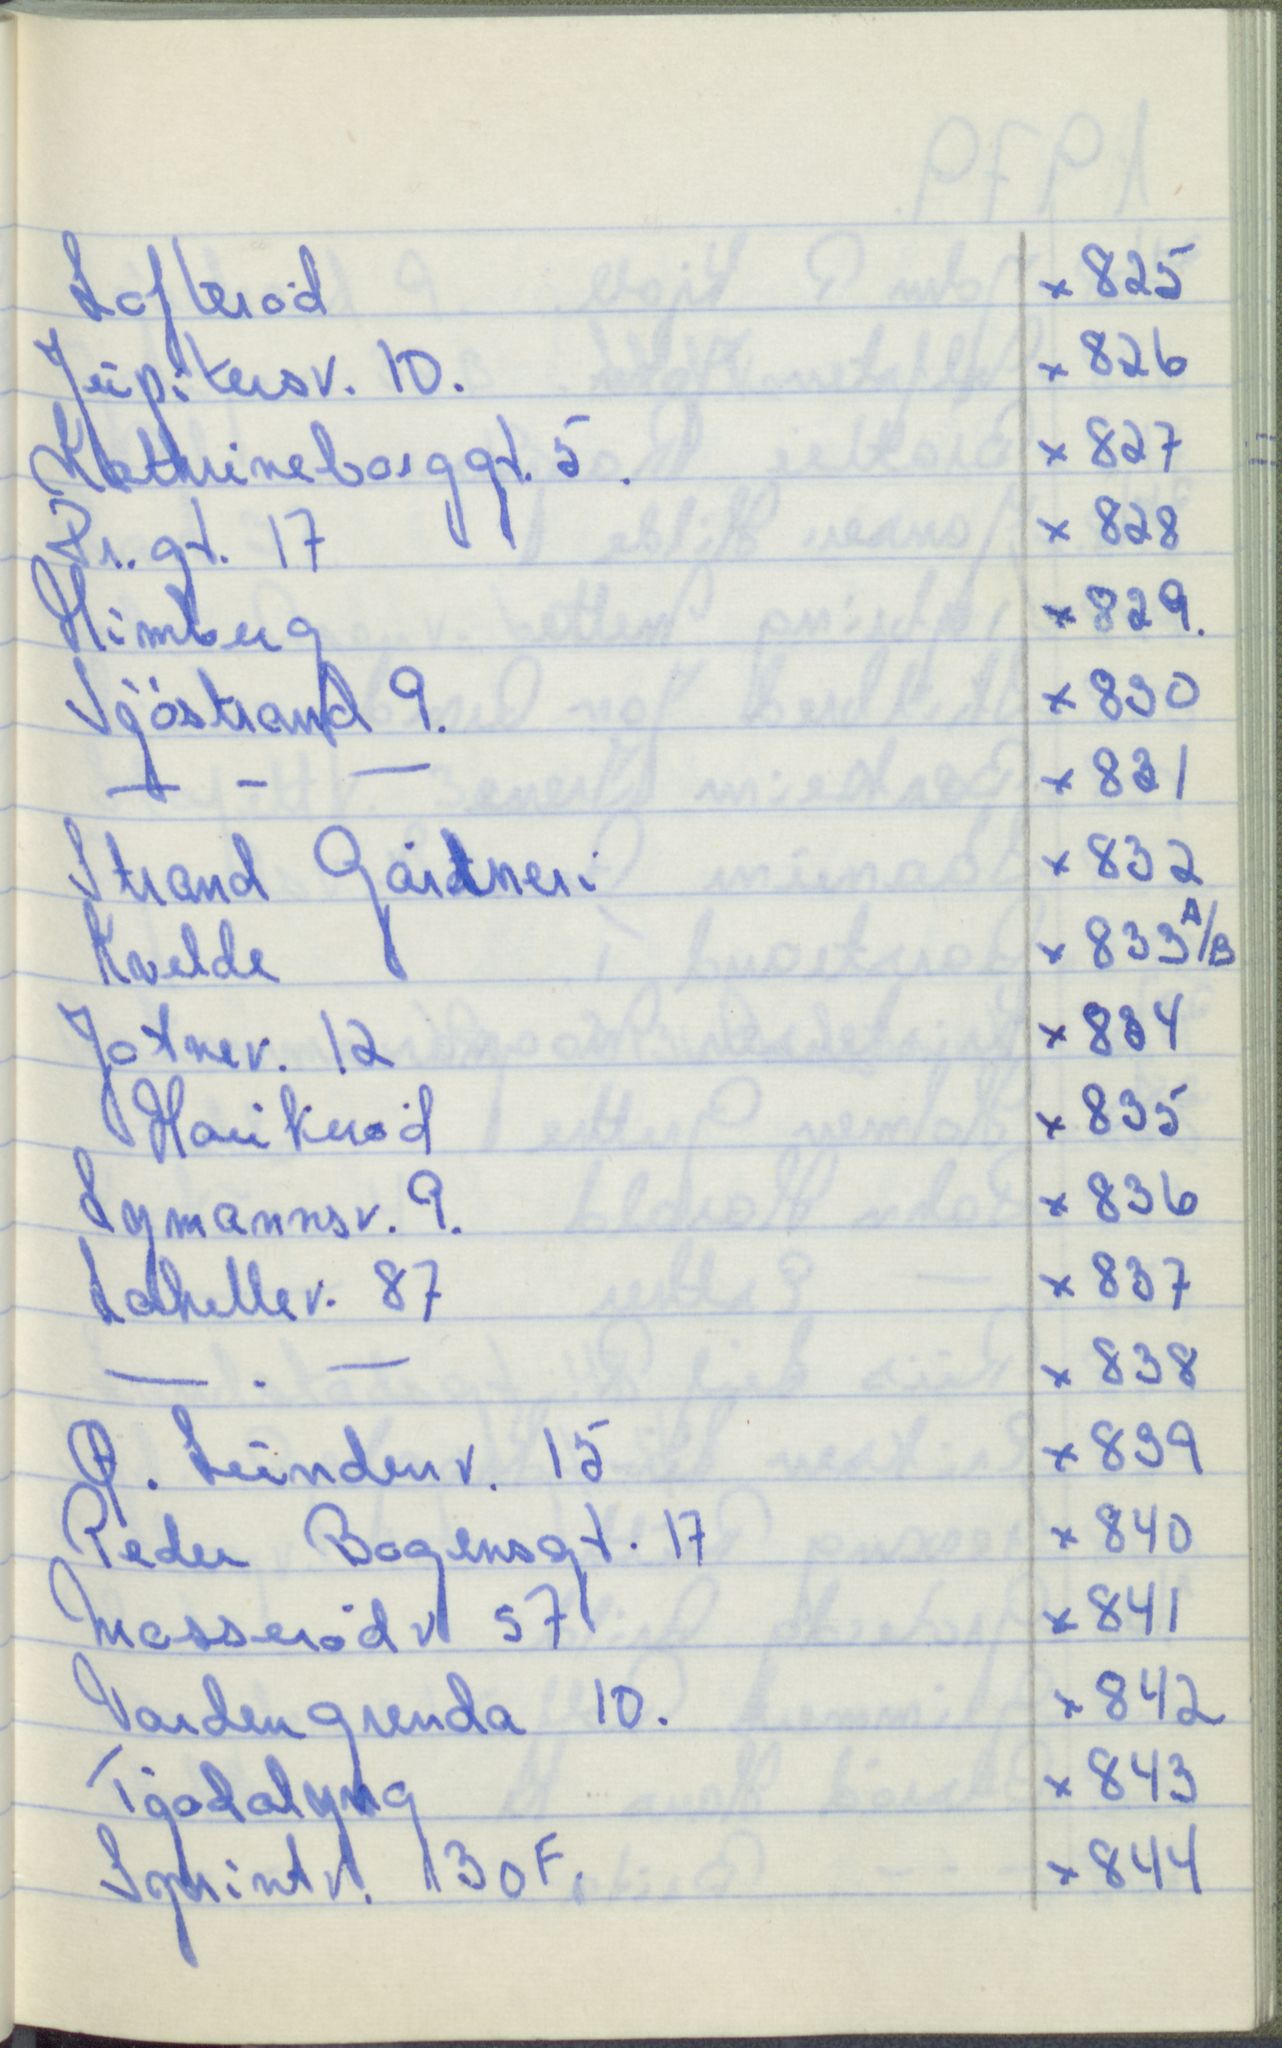 Lofterød x 825
Jupitersv. 10. x 826
Kathrineborggt. 5. x 827
Pr.gt. 17 x 828
Himberg x 829.
Sjöstrand 9. x 830
— - — x 831
Strand Gärtneri x 832
Kvelde x 833 A/B
Jotnev. 12 x 834
Haukerød x 835
Lymannsv. 9. x 836
Lahellev. 87 x 837
— . — x 838
O. Lundenv. 15 x 839
Peder Bogensgt. 17 x 840
Mosserødv 57 x 841
Vardengrenda 10. x 842
Tjodalyng x 843
Sprintv. 30 F. x 844